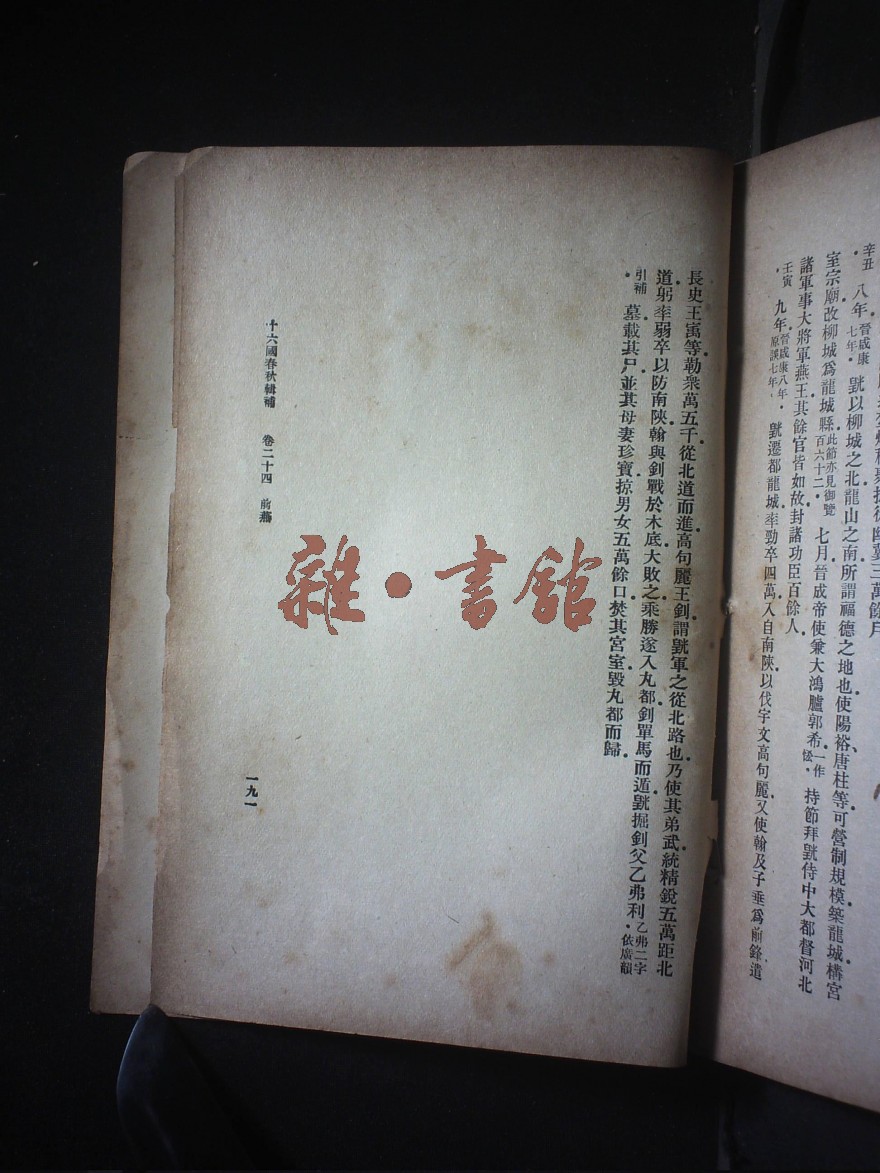 三萬餘戶
辛丑。八年。晉咸康七年。皝以柳城之北龍山之南所謂福德之地也使陽裕、唐柱等可營制規模築龍城。構宮
室宗廟改柳城爲龍城縣。此節亦見御覽百六十二。七月晉成帝使兼大鴻臚郭希一作悕。持節拜皝侍中大都督河北
諸軍事大將軍燕王其餘官皆如故封諸功臣百餘人。
壬寅。九年。晉咸康八年。原誤七年。皝遷都龍城。率勁卒四萬入自南陝以伐宇文高句麗又使翰及子垂爲前鋒遣
長史王寓等勒衆萬五千。從北道而進。高句麗王釗謂皝軍之從北路也。乃使其弟武統精銳五萬距北
道。躬率弱卒以防南陝。翰與釗戰於木底。大敗之。乘勝遂入丸都。釗單馬而遁。皝掘釗父乙弗利乙弗二字依廣韻
引補。墓載其尸並其母妻珍寶掠男女五萬餘口焚其宮室毀丸都而歸。
十六國春秋輯補 卷二十四 前燕
一九一
雜·書館